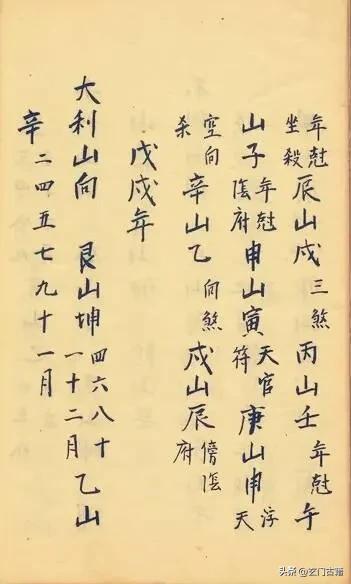 年尅坐殺辰山戍三煞丙山壬年尅午
山子年尅陰府申山寅天官符庚山申浮天
空向殺辛山乙向煞戍山辰傍陰府
戊戍年
大利山向艮山坤四六八十一十二月乙山
辛二四五七九十一月
头条@玄门古籍